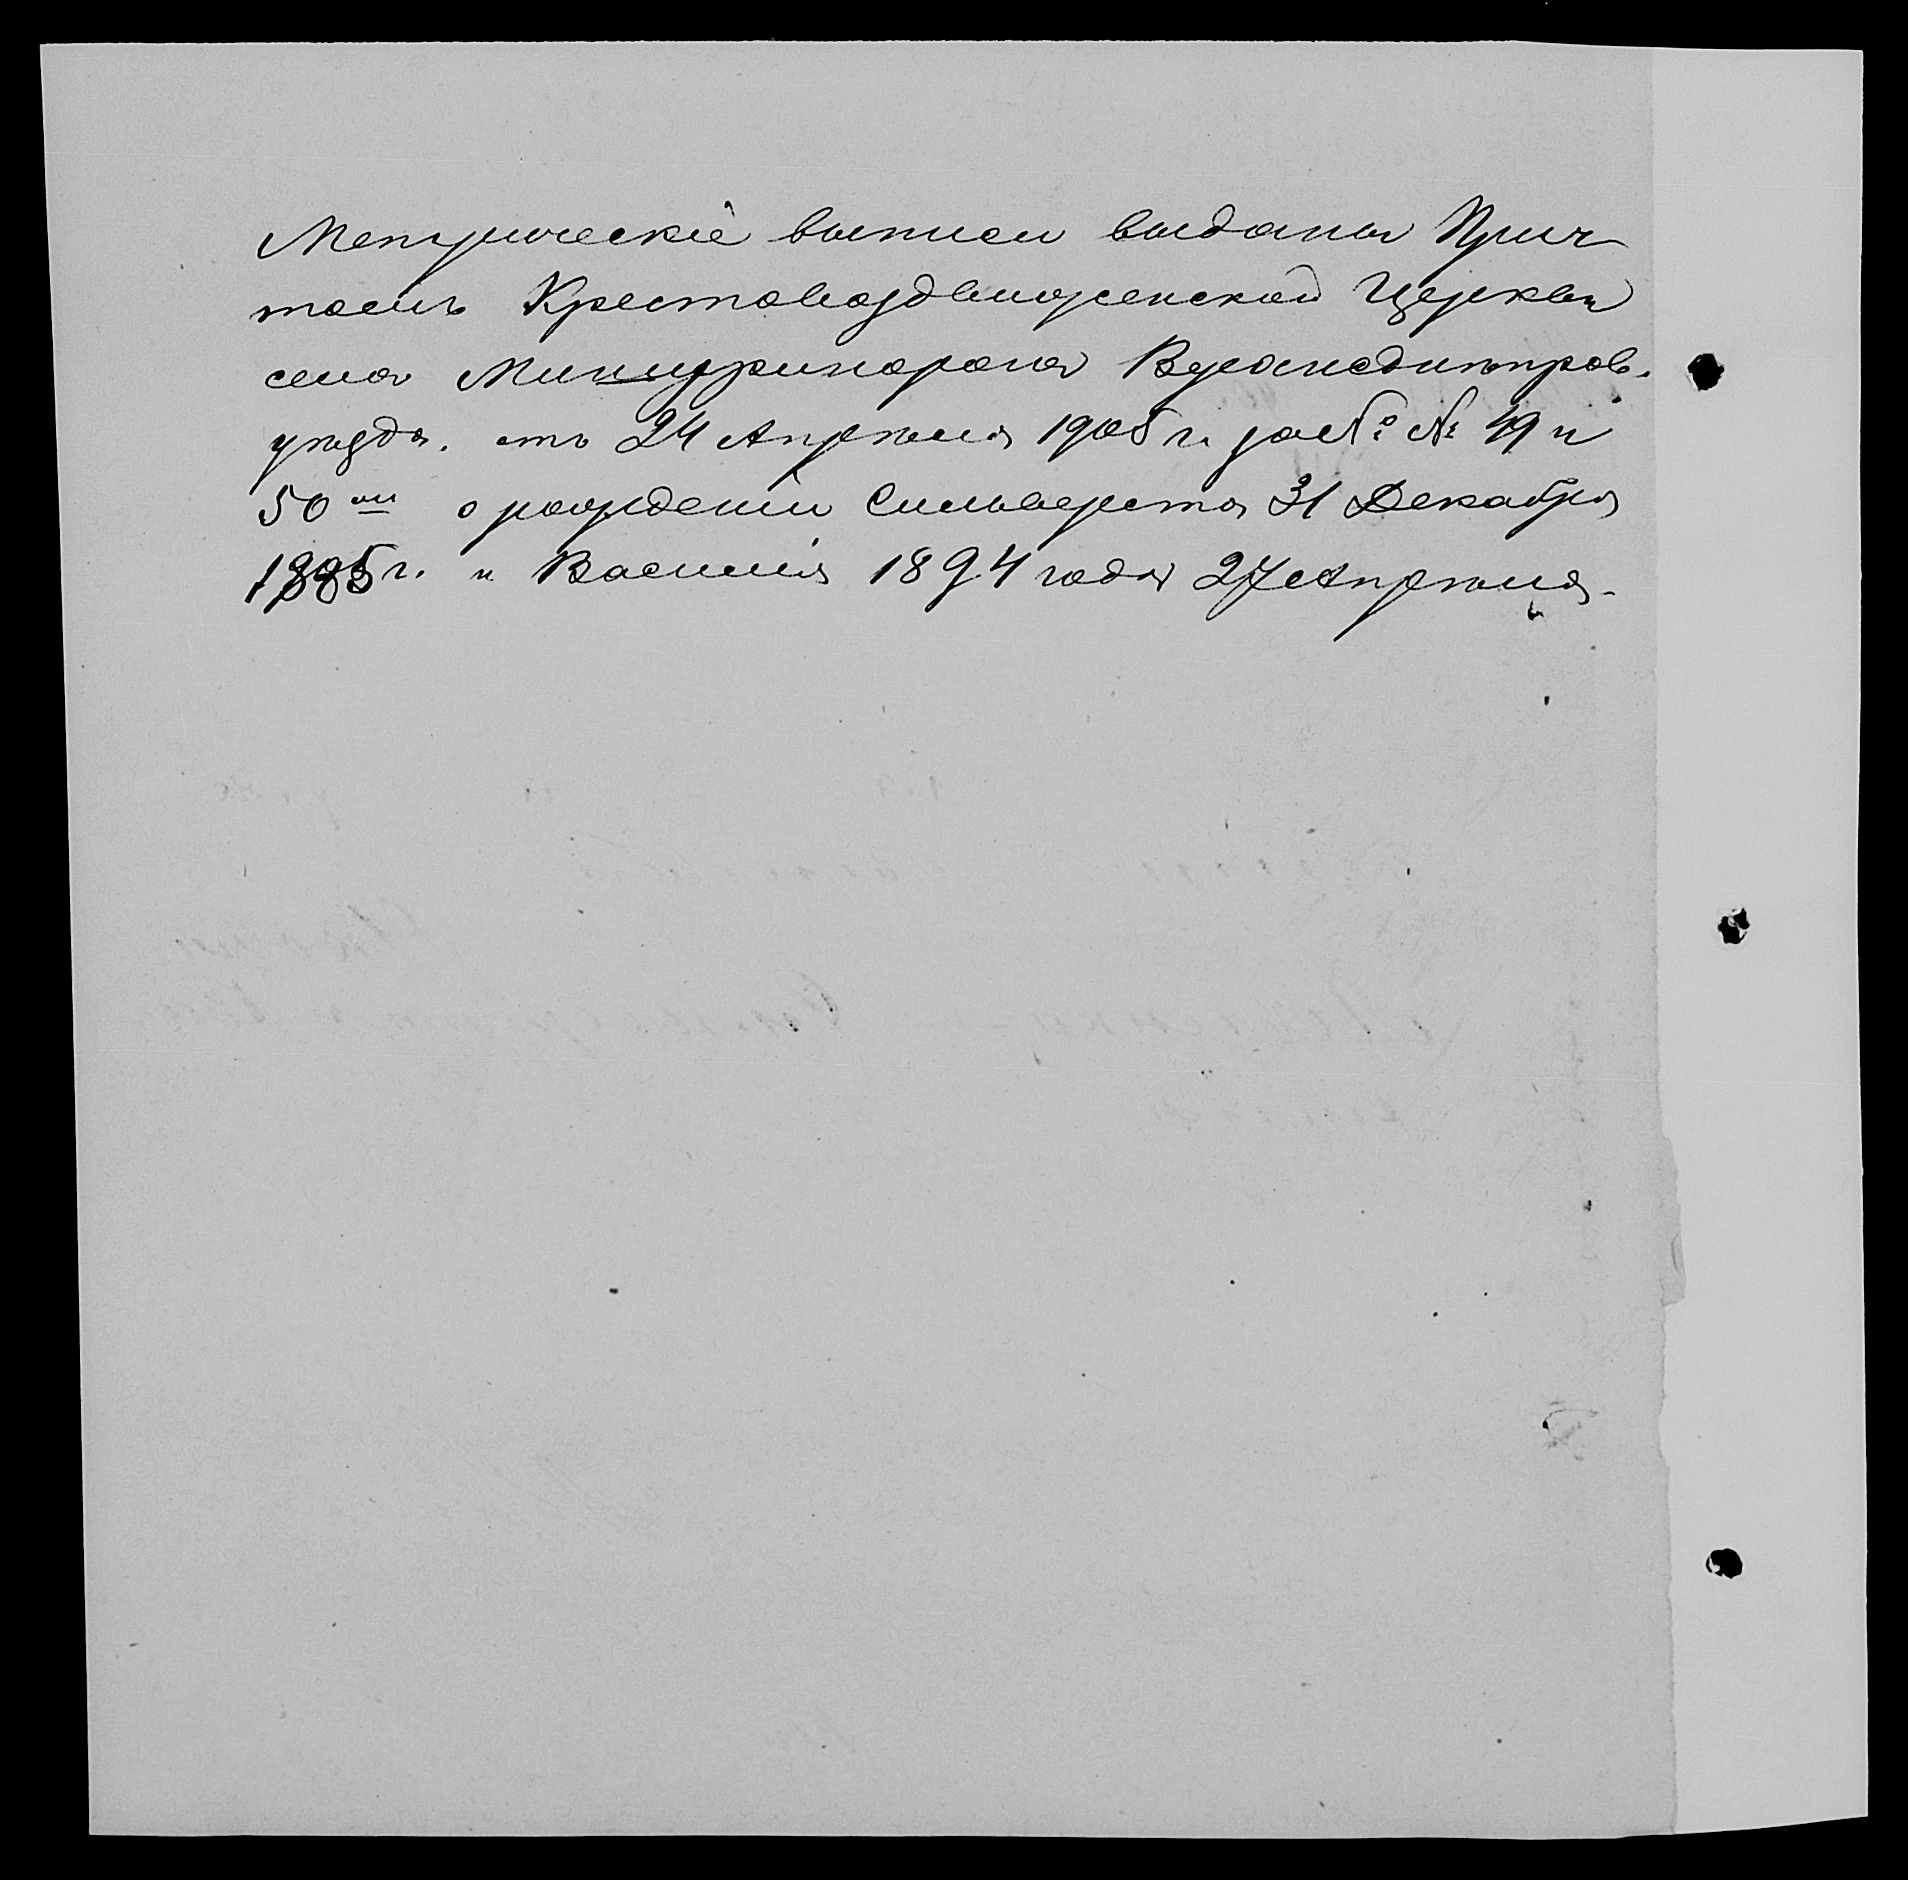 Метрическіе выписи выданы Прич
томъ Крестовоздвиженской Церкви
села Мишуринорога Верхнеднѣпров.
уѣзда. отъ 24 Апрѣля 1905 г. за № № 49 и
50 ми о рожденіи Сильверста 31 Декабря
1885 г. и Василія 1894 года 27 Апрѣля.